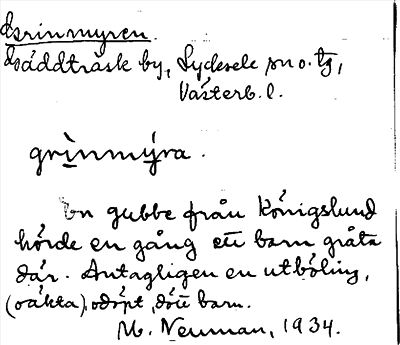 Grinmyren.
Gäddträsk by, Lycksele sn o. tg,
Västerb. l.
grinmýra.
En gubbe från Königslund
hörde en gång ett barn gråta
där. Antagligen en utböling,
(oäkta), odöpt, dött barn.
M. Neuman, 1934.